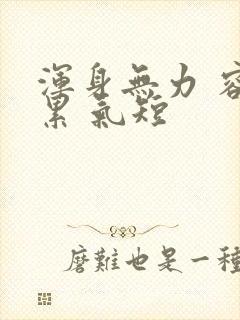 渾身無力 容
累 氣短
磨難也是一種